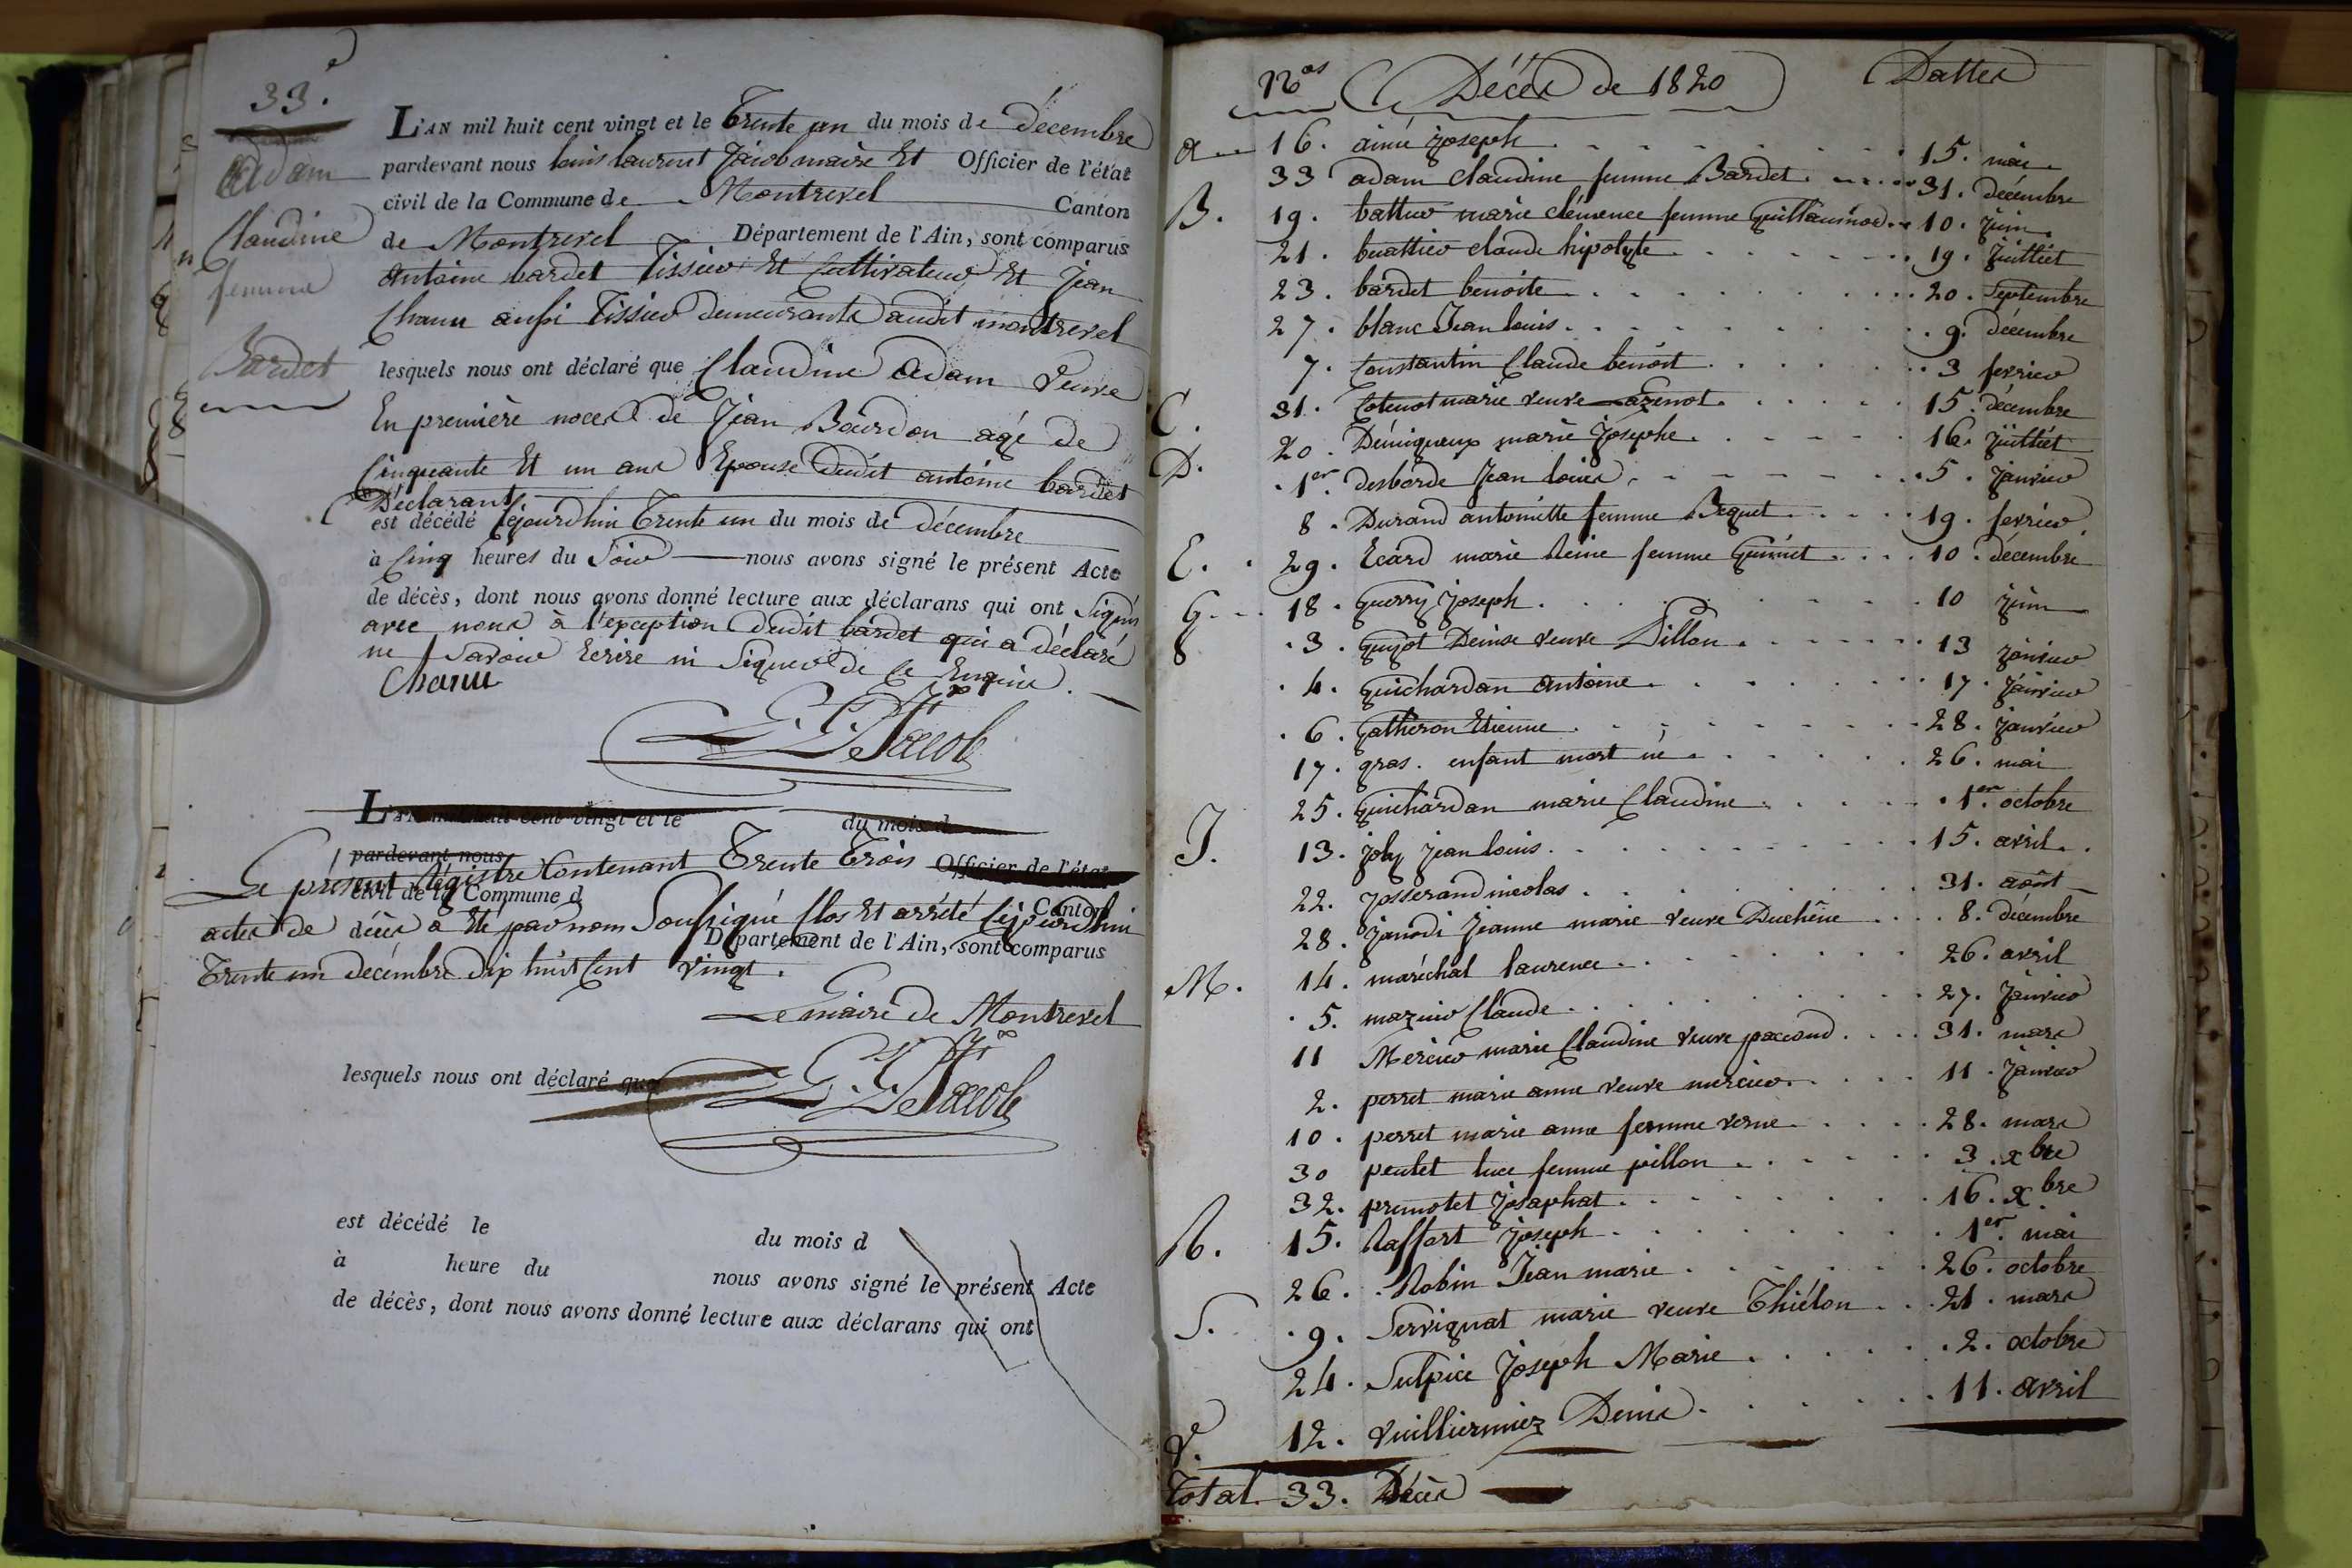 33.e
Adam
Claudine
femme
Bardet
L'AN mil huit cent vingt et le Trente un du mois de décembre
pardevant nous louis laurent Jacob maire Et Officier de l'état
civil de la Commune de Montrevel Canton
de Montrevel Département de l'Ain, sont comparus
antoine bardet Tissier Et Cultivateur Et Jean
Chanu aussi Tissier demeurants audit montrevel
lesquels nous ont déclaré que Claudine Adam Veuve
En première noces de Jean Bourdon agé de
Cinquante Et un ans Epouse dudit antoine bardet
Déclarant
est décédé cejourdhui Trente un du mois de décembre
à Cinq heures du Soir nous avons signé le présent Acte
de décès, dont nous avons donné lecture aux déclarans qui ont Signés
avec nous à l'exception dudit bardet qui a déclaré
ne Savoir Ecrire ni Signer de ce Enquis.
Chanu
L. L. Jacob
L'AN mil huit cent vingt et le du mois d
pardevant nous Officier de l'état
Le présent Régistre Contenant Trente Trois
civil de la Commune d Canton
actes de décès a Eté par nous Soussigné Clos Et arrêté cejourdhui
Département de l'Ain, sont comparus
Trente un decémbre dix huit Cent Vingt.
Le maire de Montrevel
lesquels nous ont déclaré que
L. L. Jacob
est décédé le du mois d
à heure du nous avons signé le présent Acte
de décès, dont nous avons donné lecture aux déclarans qui ont
Nos Décès de 1820 Dattes
a 16. aimé Joseph 15. mai
33 adam Claudine femme Bardet 31. décémbre
B. 19. battier marie clémence femme Guillaumod 10. juin
21. buattier claude hipolyte 19. Juillet
23. bardet benoite 20. Septembre
27. blanc Jean louis 9. décembre
C. 7. Constantin Claude benoit 3 fevrier
31. Cotenot marie veuve Lazenot 15. décembre
D. 20. Démiqueux marie Josephe 16. Juillét
1er. desborde Jean louis 5. Janvier
8. Durand antoinette femme Béguet 19. fevrier
E. 29. Ecard marie Reine femme Guinet 10. décembre
G. 18. Guerry Joseph 10 Juin
3. guyot Denise veuve Pillon 13 janvier
4. guichardan antoine 17. Janvier
6. Gatheron Etienne 28. janvier
17. gras. enfant mort né 26. mai
25. guichardan marie Claudine 1er. octobre
J. 13. Joly Jean louis 15. avril.
22. Josserand nicolas 31. août
28. Janodi Jeanne marie veuve Duchêne 8. décembre
M. 14. maréchal laurence 26. avril
5. mazuir Claude 27. Janvier
11 Mercier marie Claudine veuve paccoud 31. mars
2. perret marie anne veuve mercier 11. Janvier
10. perret marie anne femme verne 28. mars
30 peulet luce femme pillon 3. xbre
32. premotet Josaphat 16. xbre
R. 15. Raffort Joseph 1er. mai
26. Robin Jean marie 26. octobre
S. 9. Servignat marie veuve Thiélon 21. mars
24. Sulpice Joseph Marie 2. octobre
V. 12. vuilliermiez Denis 11. avril
Total 33. Décès